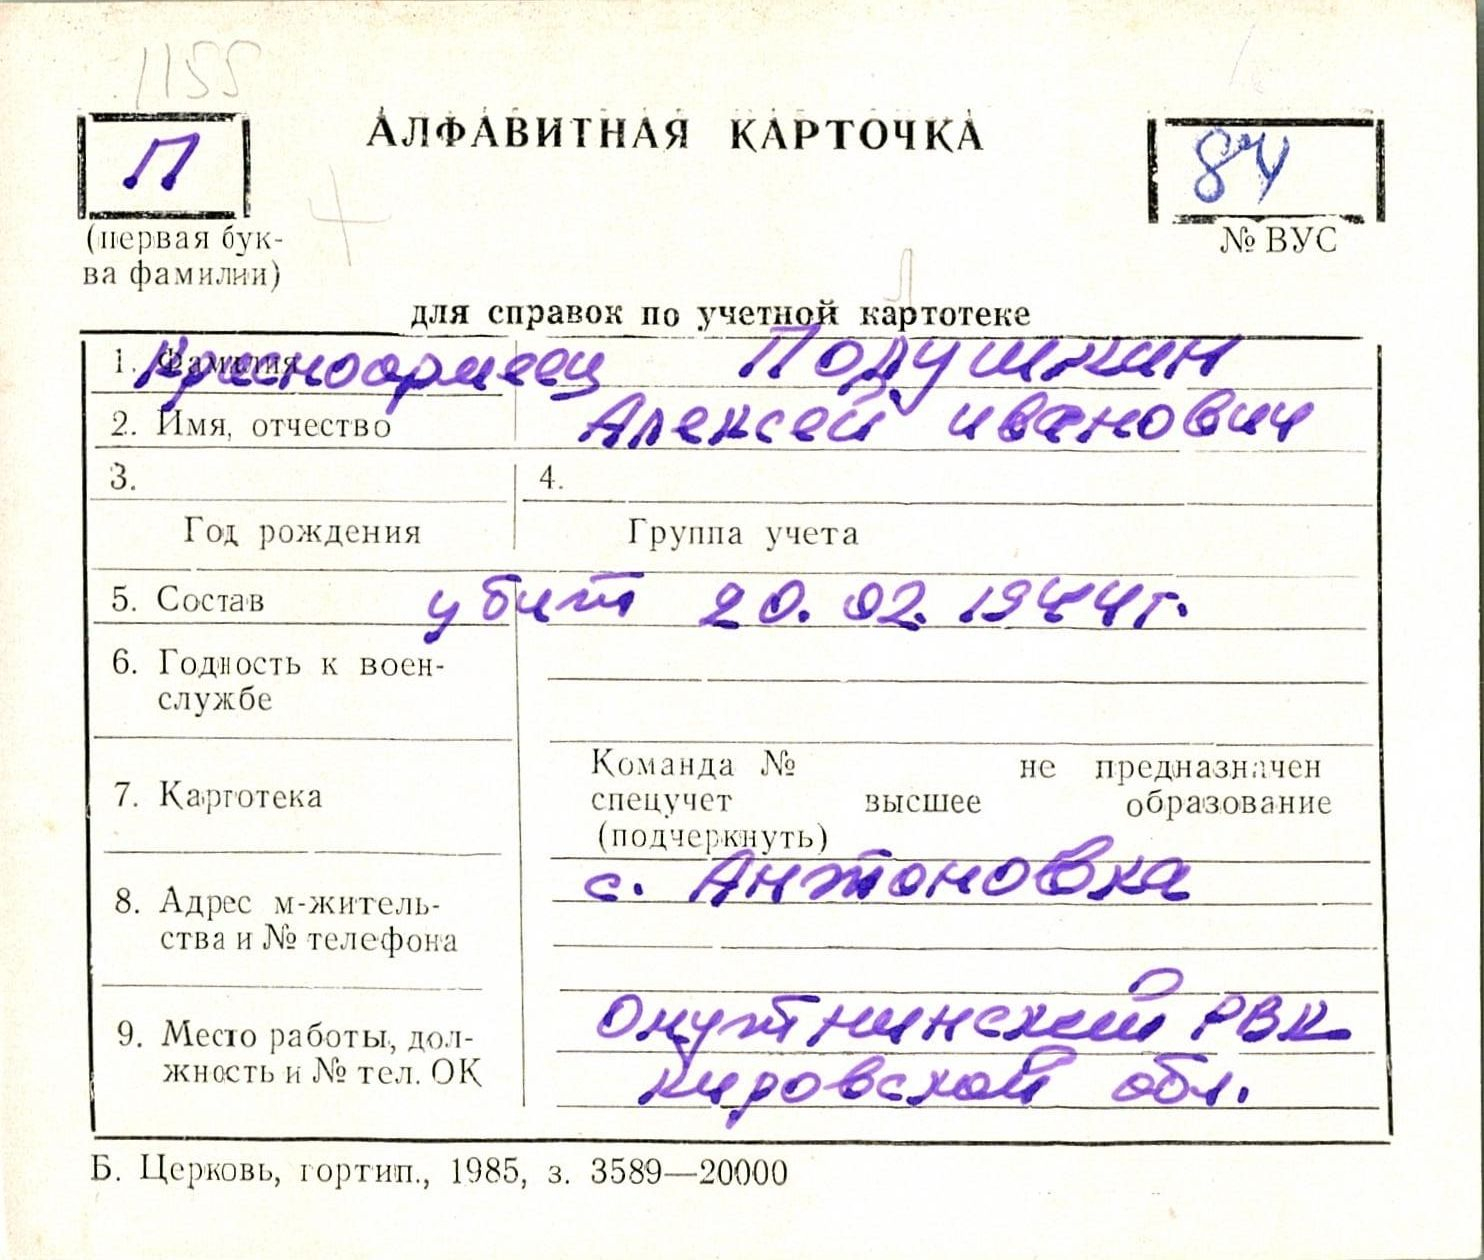 1155
П
АЛФАВИТНАЯ КАРТОЧКА
84
(первая бук-
ва фамилии)
№ ВУС
для справок по учетной картотеке
1. Фамилия
Красноармеец Подушкин
2. Имя, отчество Алексей Иванович
3. 4.
Год рождения Группа учета
5. Состав убит 20.02.1944г.
6. Годность к воен-
службе
Команда № не предназначен
7. Картотека
спецучет высшее образование
(подчеркнуть)
с. Антоновка
8. Адрес м-житель-
ства и № телефона
Онутнинский РВК
9. Место работы, дол-
жность и № тел. ОК
Кировской обл.
Б. Церковь, гортип., 1985, з. 3589—20000